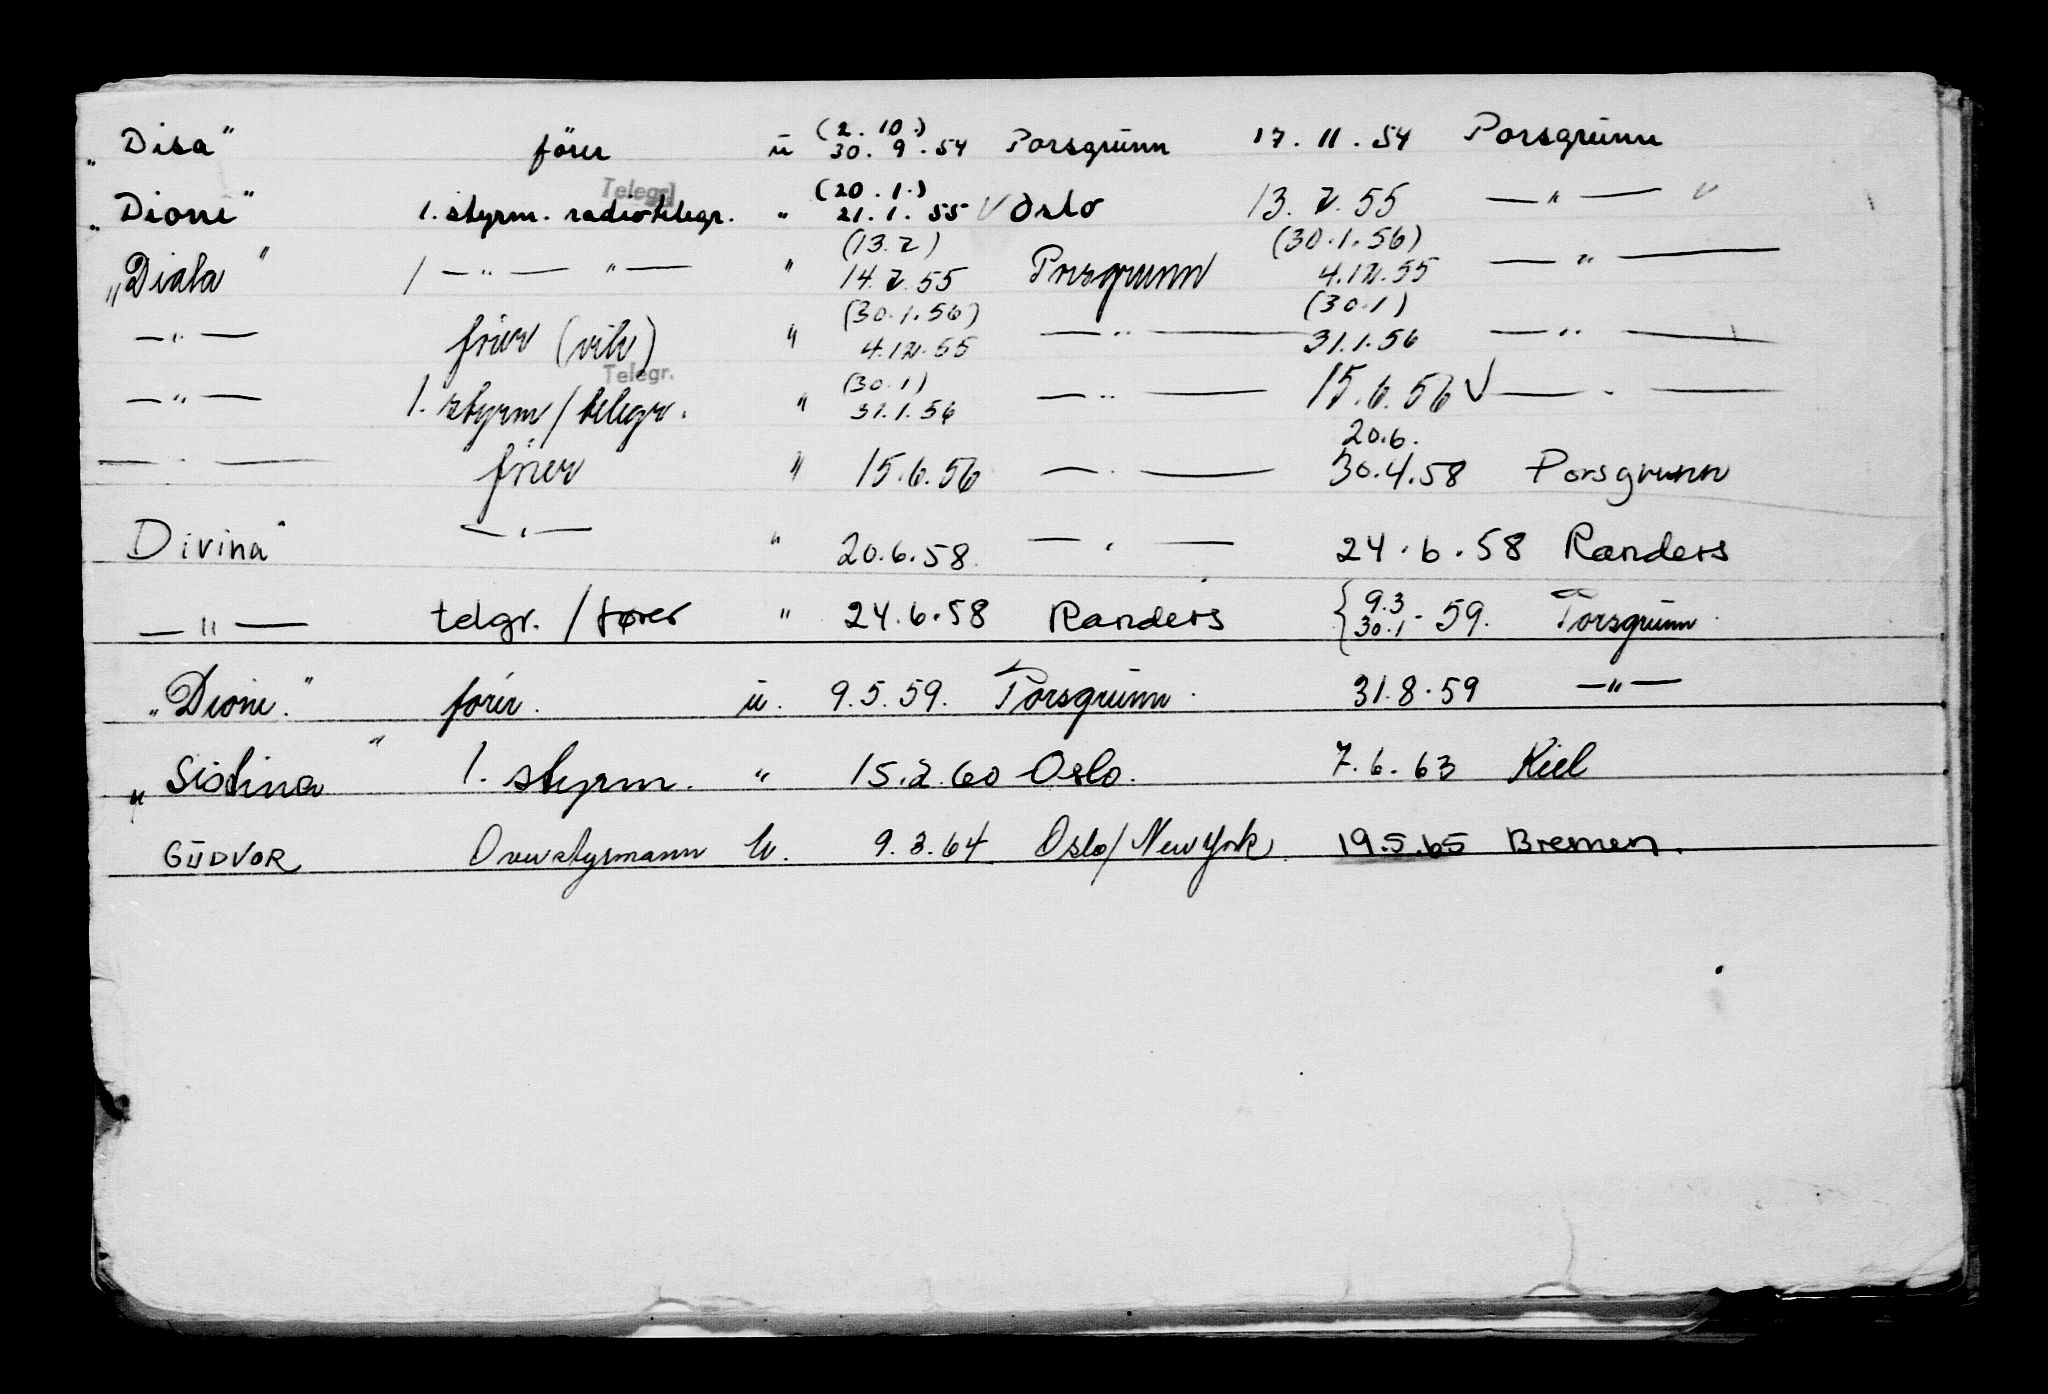 (2. 10.)
„Disa" förer ü 30. 9. 54 Porsgrünn 17. 11. 54 Porsgrünn
Telegr. (20. 1.)
„Dione" 1. styrm. radiotelegr. " 21. 1. 55 V Oslo 13. 2. 55 — " — v
(13. 2) (30. 1. 56)
„Diala" 1 — " — " — " 14. 2. 55 Porsgrunn 4. 12. 55 — " —
(30. 1. 56) (30. 1)
— " — förer (vik) " 4. 12. 55 — " — 31. 1. 56 — " —
Telegr. (30. 1)
— " — 1. styrm / telegr. " 31. 1. 56 — " — 15. 6. 56 V — " —
20. 6.
— " — förer " 15. 6. 56 — " — 30. 4. 58 Porsgrunn
Divina" — " — " 20. 6. 58 — " — 24. 6. 58 Randers
— " — telgr. / fører " 24. 6. 58 Randers { 9.3 30.1 - 59. Porsgrünn
„Dione." förer. ü. 9. 5. 59. Porsgrünn. 31. 8. 59 — " —
„Sistina" 1. styrm. " 15. 2. 60 Oslo. 7. 6. 63 Kiel
GÜDVOR Overstyrmann U. 9. 3. 64 Oslo/New York 19. 5. 65 Bremen.